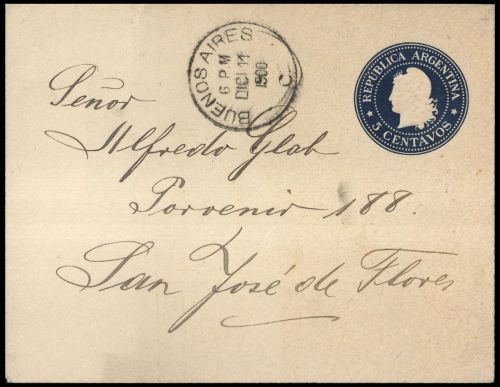 BUENOS AIRES
6 P M
DIC 11
1900
C
REPUBLICA ARGENTINA
5 CENTAVOS
Señor
Alfredo Glab
Porvenir 188.
San José de Flores